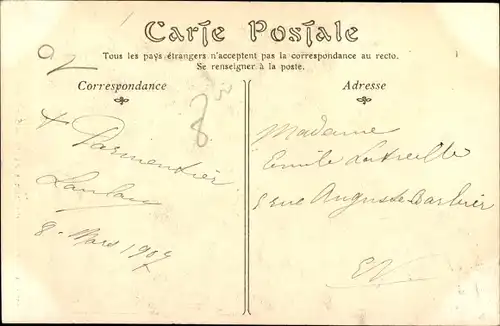 Carte Postale
Tous les pays étrangers n'acceptent pas la correspondance au recto.
Se renseigner à la poste.
Correspondance
Adresse
Parmentier
8 - Mars 1907
Madame
Emile Lutreille
5 rue Auguste Barbier
EV